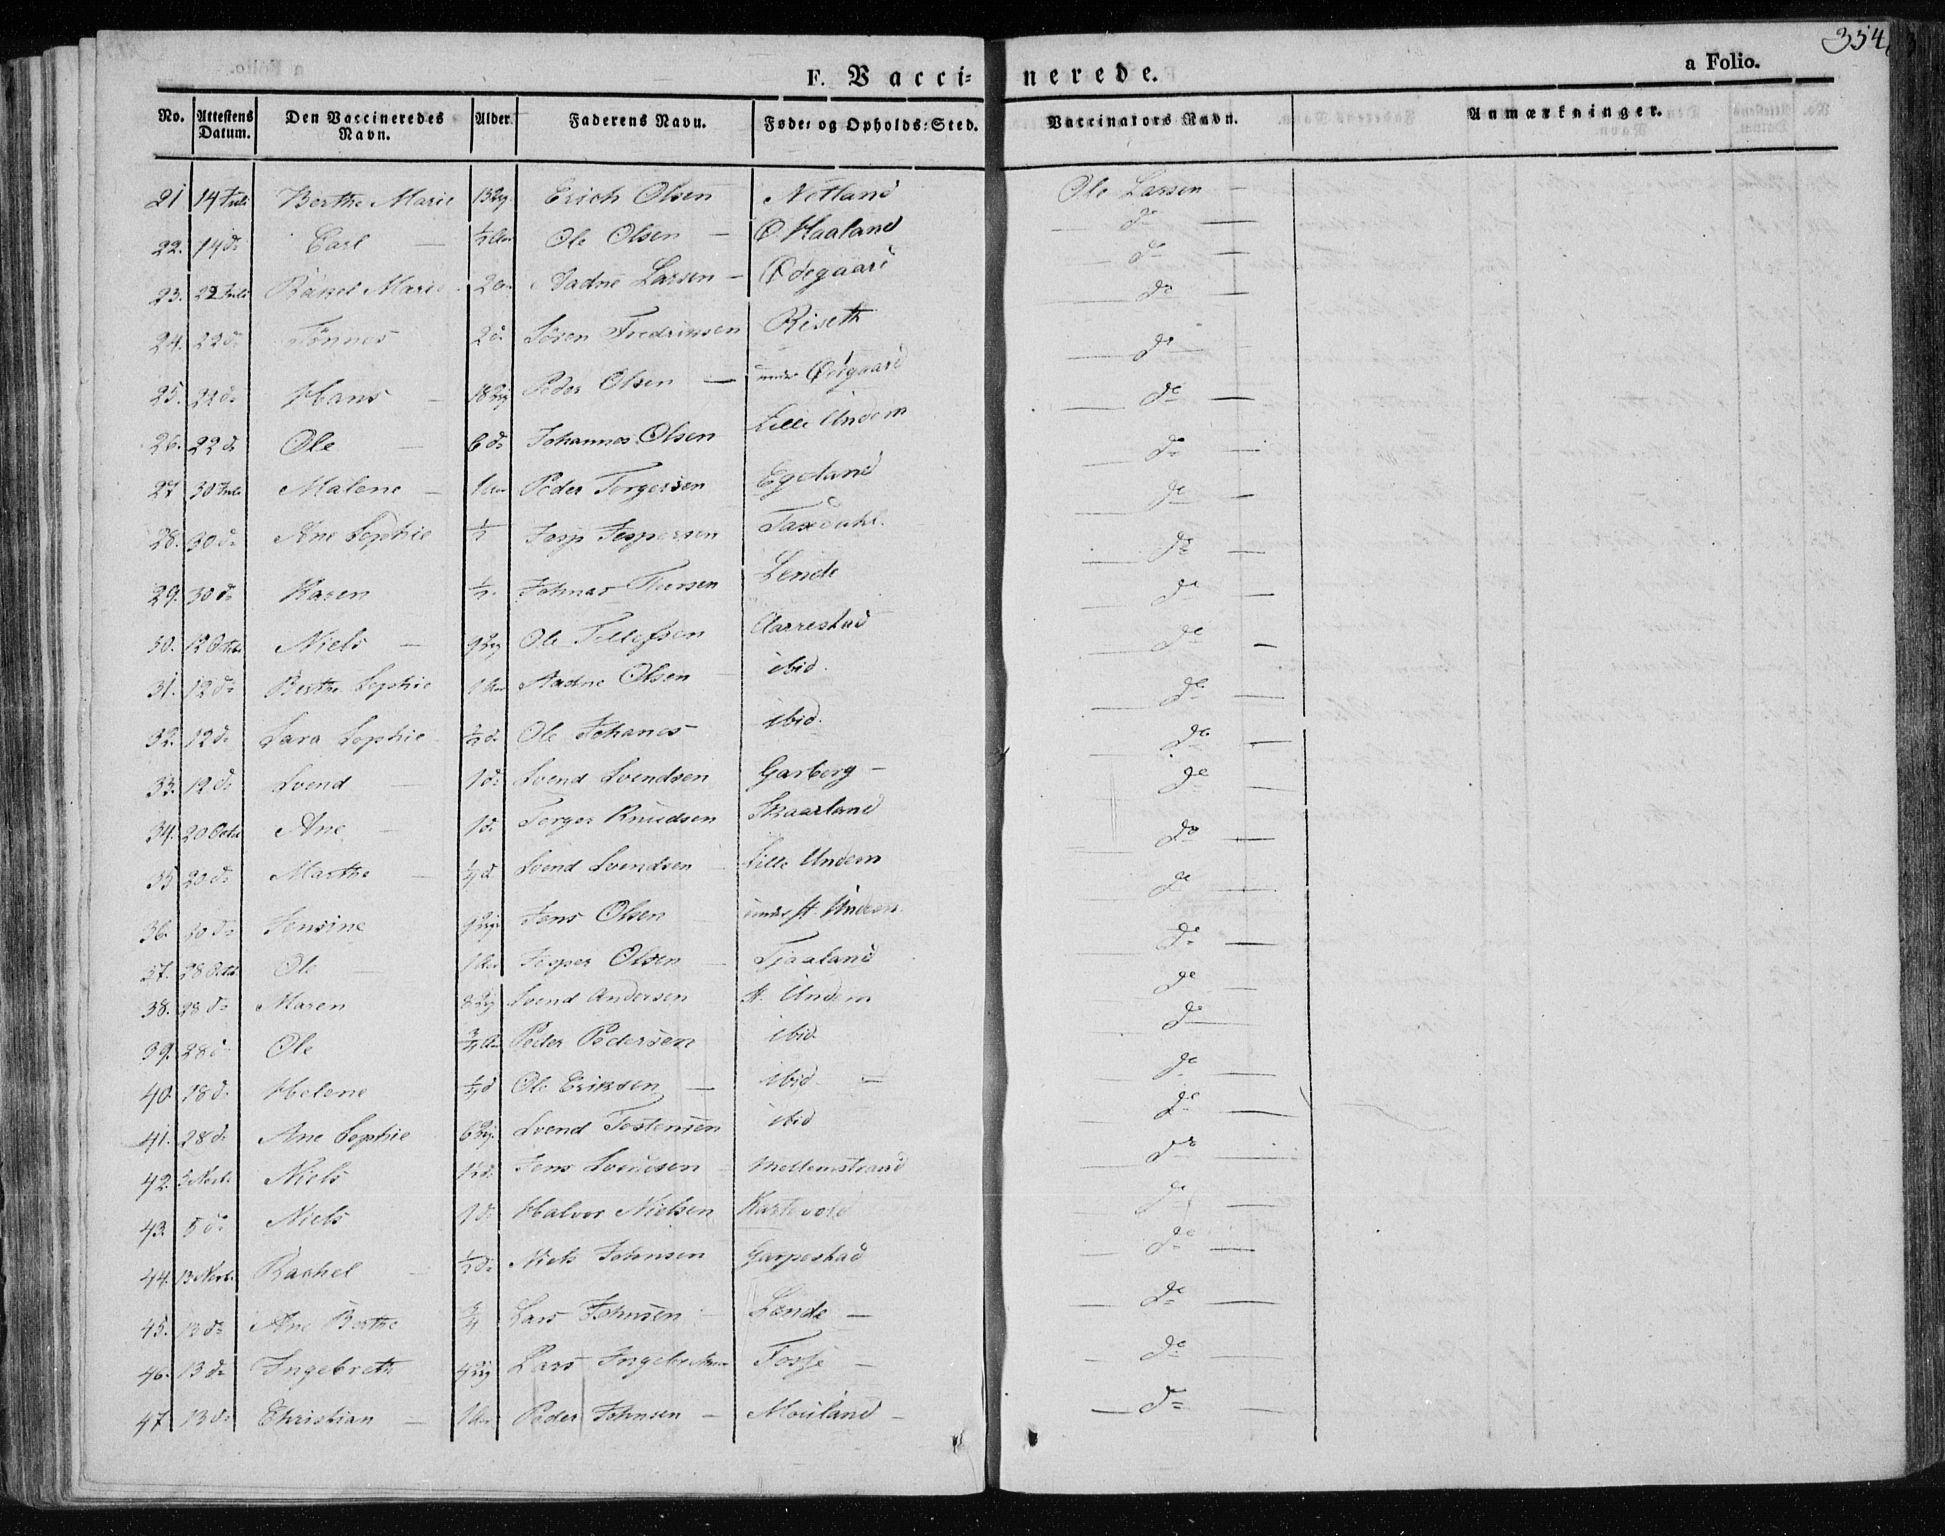 354
F. Vaccinerede. a Folio.
No. Attestens Datum. Den Vaccineredes Navn. Alder. Faderens Navn. Føde- og Opholds-Sted. Vaccinators Navn. Anmærkninger.
21 14 Juli Berthe Marie 13 Erich Olsen Netland Ole Larsen —
22. 14 do Carl — 1/2 Ole Olsen — Ø. Haaland — do —
23. 22 Juli Rakel Marie 2 Aadne Larsen — Ødegaard — do —
24. 22 do Tönnes 2 d. Sören Fredriksen Riseth — do —
25. 22 do Hans — 18 Peder Olsen — under Ødegaard — do —
26. 22 do Ole — 6 do Johannes Olsen Lille Undem — do —
27 30 Juli Malene — 1 Peder Torgersen Egeland — do —
28. 30 do Ane Sophie 1/2 Jesper Taxdahl. — do —
29. 30 do Karen 1/2 Lende — do —
30. 12 Octbr Niels — 9 Ole Tellefsen Aarrestad — do —
31. 12 do Berthe Sophie 1 Aadne Olsen — ibid. — do —
32. 12 do Sara Sophie 1/2 d. Ole Johanes ibid. — do —
33. 12 do Svend — 1 do Svend Svendsen Garberg — — do —
34. 20 Octbr Ane — 1 d. Torger Knudsen Skaarland — do —
35 20 do Marthe — d Svend Svendsen Lille Undem — do —
36. 20 do Jensine Jens Olsen under st. Undem. — do —
37. 28 Octbr Ole — 1 Jesper Olsen — Tjaaland — do —
38. 28 do Maren 8 Svend Andersen st. Undem — do —
39. 28 do Ole 3/4 Peder Pedersen ibid. — do —
40. 28 do Helene d Ole Eriksen — ibid — — do —
41. 28 d. Ane Sophie 6 Svend Tostensen ibid — do —
42. Novbr Niels Jens Svendsen Mellemstrand — do —
43. 5 do Niels 1 d. Halvor Nielsen Kartevold — do —
44. 13 Novbr Rachel — 1/2 do Niels Johnsen Garpestad — do —
45. 13 do Ane Berthe 3/4 Lars Johnsen Lende — — do —
46. 13 do Ingebreth 4 Lars Ingebretsen Fosse — — do —
47. 13 do Christian — 1 Peder Johnsen — Mouland — — do —